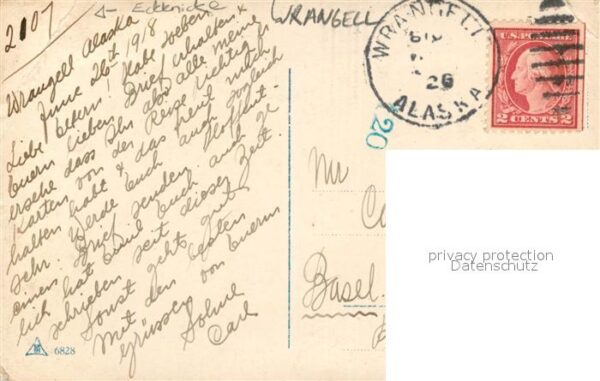 2107
← Eckknicke
WRANGELL
Wrangell Alaska
June 26th 1918
Liebe Eltern! Habe soeben
Euern lieben Brief erhalten &
ersehe dass Ihr also alle meine
Karten von der Reise richtig er
halten habt & das freut mich
sehr. Werde Euch auch sogleich
einen Brief senden. Hoffent-
lich hat Emil Euch auch ge
schrieben seit dieser Zeit.
Sonst geht's gut
Mit den besten
Grüssen von Euerm
Sohne
Carl
6828
WRANGELL
26
ALASKA
U.S. POSTAGE
2 CENTS 2
20
Mr
Basel.
privacy protection
Datenschutz